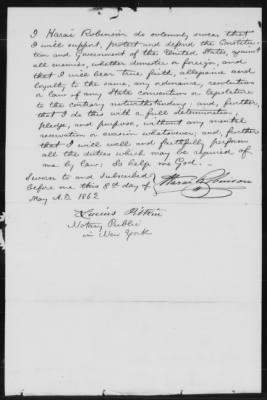 I Harai Robinson do solemnly swear that
I will support, protect and defend the Constitu-
tion and Government of the United States, against
all enemies, whether domestic or foreign, and
that I will bear true faith, allegiance and
loyalty to the same, any ordinance, resolution
or law of any State Convention or legislature
to the contrary notwithstanding; and, further,
that I do this with a full determination,
pledge, and purpose, without any mental
reservation or evasion whatsoever; and, further
that I will well and faithfully perform
all the duties which may be required of
me by law: So help me God.
Sworn to and subscribed
before me this 8th day of
May A.D. 1862
Harai Robinson
Lucius Pitkin
Notary Public
in New York